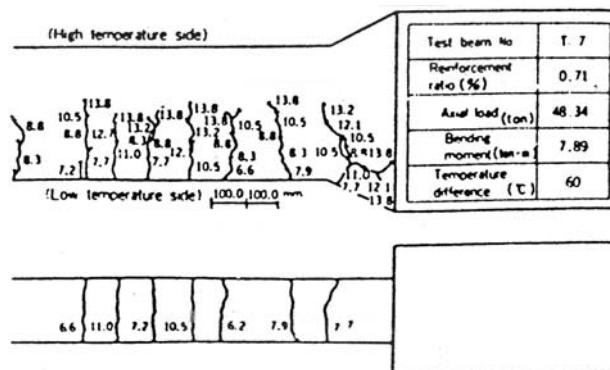 (High temperature side)
Test beam No T. 7
Reinforcement ratio (%) 0.71
Axial load (ton) 48.34
Bending moment (ton-m) 7.89
Temperature difference (℃) 60
13.8
13.8
13.8
13.8
13.2
10.5
13.8
13.8
13.8
10.5
10.5
12.1
8.8
8.8
12.7
13.2
13.2
8.8
10.5
8.3
8.8
8.8
8.3
7.7
11.0
7.7
12.
8.3
8.3
10.5
13.8
7.2
10.5
6.6
7.9
11.0
7.7
12.1
13.8
(Low temperature side)
100.0 100.0 mm
6.6 11.0 7.2 10.5 6.2 7.9 7.7